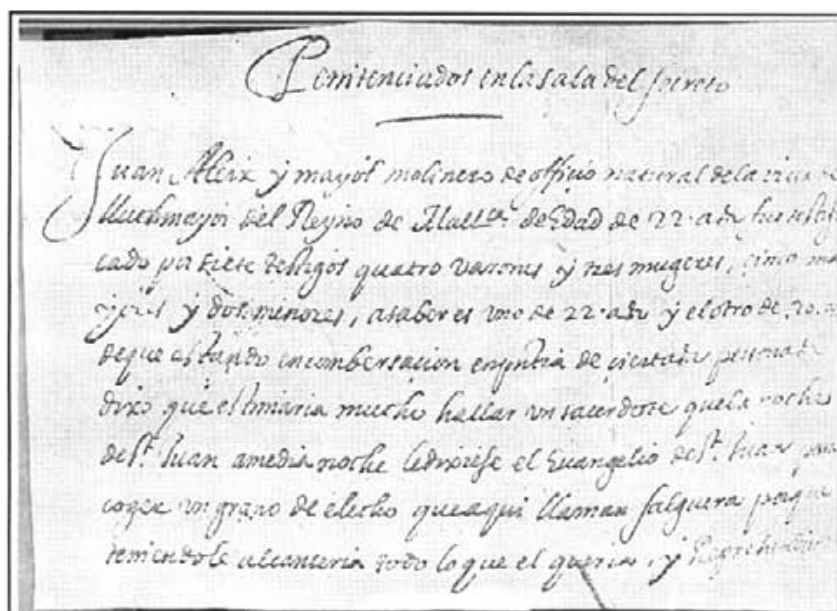 Penitenciados en la sala del secreto
Juan Aleix y mayol molinero de officio natural de la
lluchmayor del Reyno de Mall.ca de Edad de 22 a.s fue
cado por siete testigos quatro varones y tres mugeres, cinco
y dos menores, a saber es uno de 22 a.s y el otro de 20
de que estando en combersacion en de ciertas personas
dixo que estimaria mucho hallar un sacerdote que la noche
de S.t Juan a media noche le dixese el Evangelio de S.t Juan para
coger un grano de elecho que aqui llaman falguera porque
teniendole alcanceria todo lo que el queria, y